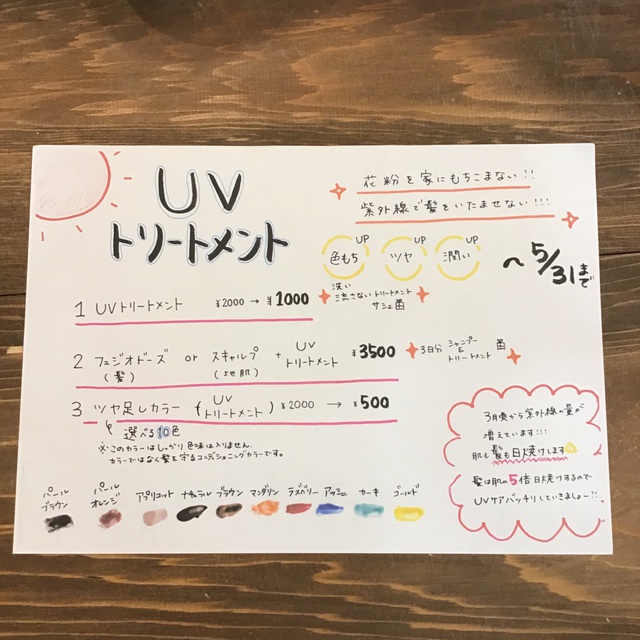 UV
トリートメント
花粉を家にもちこまない!!
紫外線で髪をいたませない!!!
色もち UP ツヤ UP 潤い UP
~5/31まで
1 UVトリートメント ¥2000 → ¥1000
洗い
流さないトリートメント
サシェ
2 フュジオドーズ or スキャルプ + UVトリートメント ¥3500
(髪) (地肌)
3日分 シャンプー & トリートメント
3 ツヤ足しカラー (UVトリートメント) ¥2000 → ¥500
選べる10色
※このカラーはしっかり色味は入りません。
カラーではなく髪を守るコンディショニングカラーです。
パールブラウン パールオレンジ アプリコット ナチュラル ブラウン マンダリン ラズベリー アッシュ カーキ ゴールド
3月頃から紫外線の量が
増えています!!!
肌も髪も日焼けします
髪は肌の5倍日焼けするので
UVケアバッチリしていきましょー!!